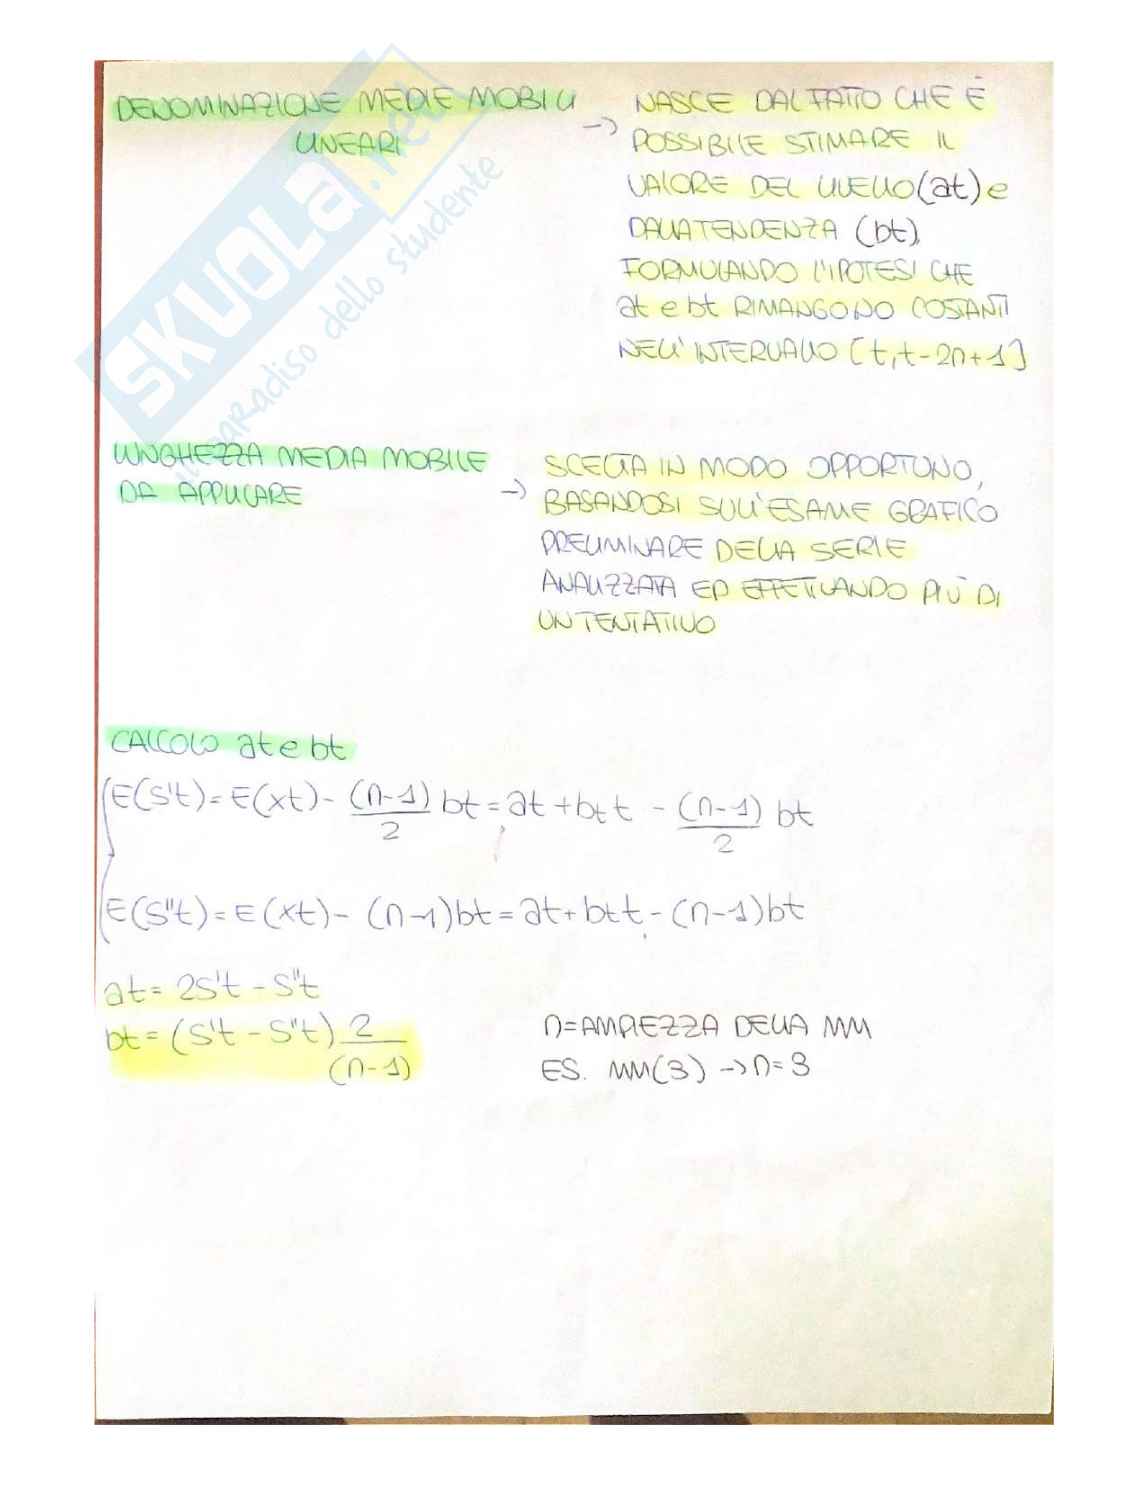 DENOMINAZIONE MEDIE MOBILI
LINEARI
-> NASCE DAL FATTO CHE È
POSSIBILE STIMARE IL
VALORE DEL LIVELLO (at) e
DALLA TENDENZA (bt),
FORMULANDO L'IPOTESI CHE
at e bt RIMANGONO COSTANTI
NELL'INTERVALLO [t, t-2n+1]
LUNGHEZZA MEDIA MOBILE
DA APPLICARE
-> SCELTA IN MODO OPPORTUNO,
BASANDOSI SULL'ESAME GRAFICO
PRELIMINARE DELLA SERIE
ANALIZZATA ED EFFETTUANDO PIÙ DI
UN TENTATIVO
CALCOLO at e bt
E(S't) = E(xt) - (n-1)/2 bt = at + bt t - (n-1)/2 bt
E(S''t) = E(xt) - (n-1)bt = at + bt t - (n-1)bt
at = 2S't - S''t
bt = (S't - S''t) 2/(n-1)
n = AMPIEZZA DELLA MM
ES. MM(3) -> n = 3
SKUOLA.net
il paradiso dello studente